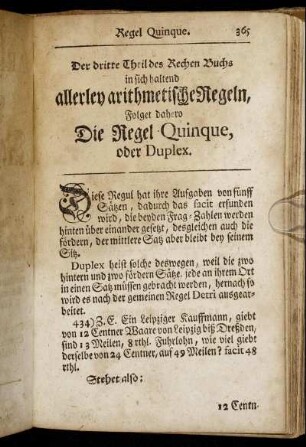 Regel Quinque. 365
Der dritte Theil des Rechen Buchs
in sich haltend
allerley arithmetische Regeln,
Folget dahero
Die Regel Quinque,
oder Duplex.
Diese Regul hat ihre Aufgaben von fünff
Sätzen, dadurch das facit erfunden
wird, die beyden Frag-Zahlen werden
hinten über einander gesetzt, desgleichen auch die
fördern, der mittlere Satz aber bleibt bey seinem
Sitz.
Duplex heist solche deswegen, weil die zwo
hintern und zwo fördern Sätze jede an ihrem Ort
in einen Satz müssen gebracht werden, hernach so
wird es nach der gemeinen Regel Detri ausgear-
beitet.
434) Z.E. Ein Leipziger Kauffmann, giebt
von 12 Centner Waare von Leipzig biß Dreßden,
sind 13 Meilen, 8 rthl. Fuhrlohn, wie viel giebt
derselbe von 24 Centner, auf 49 Meilen? facit 48
rthl.
Stehet also:
12 Centn.